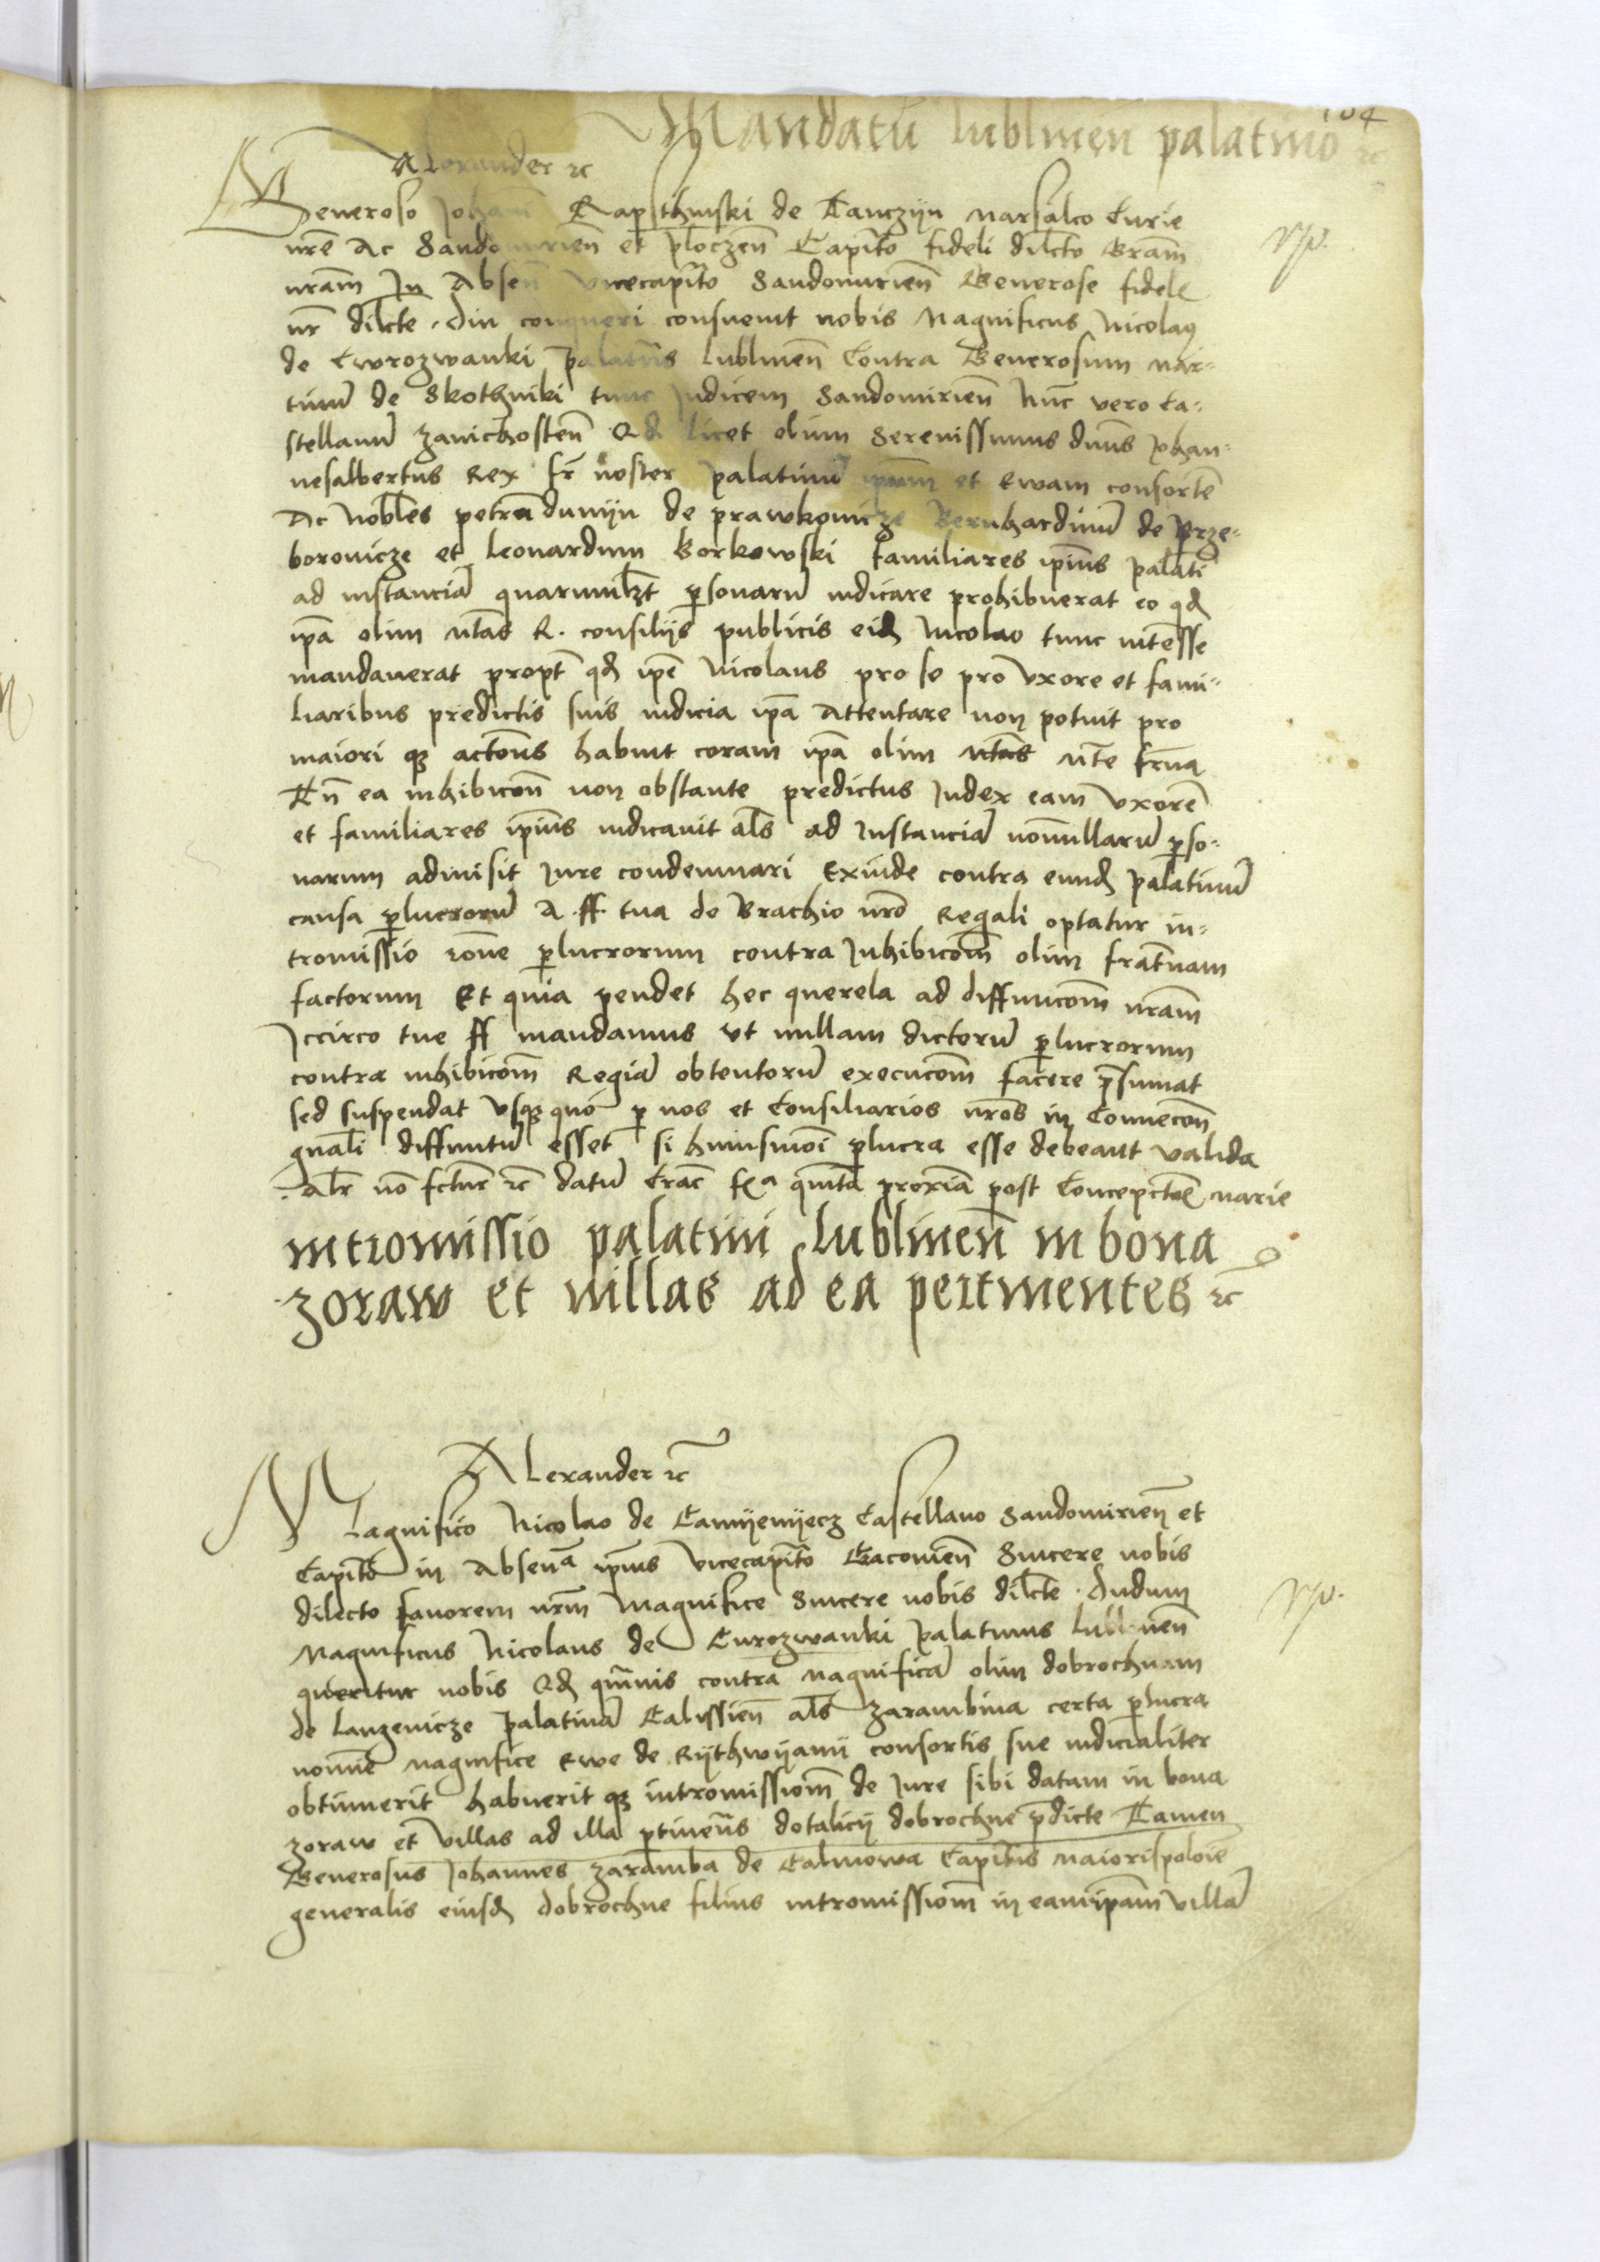 104
Mandatū lublinen palatino ꝛc
Alexander ꝛc
Generoso Johanī Rapsthinski de Tanczijn Marsalco Curie
nrē Ac Sandomirien̄ et ploczen̄ Capito fideli dilcto Gram
nram In Absen̄ vicecapito Sandomirien̄ Generose fidel
nr dilcte. Diu conqueri consuevit nobis Magnificus Nicolaꝯ
de Cwrozwanki palatinꝰ lublinen̄ Contra Generosum Mar-
tinū de Skothniki tunc Judicem Sandomirien̄ Nūc vero Ca-
stellanū zavichosten̄ Qd licet olim Serenissimus dnūs Johan-
nesalbertus Rex fr noster palatinū ipsum et Ewam consortē
Ac Nobles petrū dunijn de prawkovicze Bernhardinū de Prze-
borovicze et Leonardum Borkowski familiares ipius palati
ad instanciā quarumlzt psonarū iudicare prohibuerat eo qd
ipa olim Mtas R. consilijs publicis eid Nicolao tunc intēsse
mandauerat propt qd ipē Nicolaus pro se pro vxore et fami-
liaribus predictis suis iudicia ipa Attentare non potuit pro
maiori qꝫ actōnes habuit coram ipa olim Mtas
Tn̄ ea inhibicōn non obstante predictus Judex eam vxorē
et familiares ipius iudicauit als ad Instanciā nonnullarū pso-
narum admisit Jure condemnari Exinde contra eund palatinū
causa plucrorū A ff tua de Brachio nrō Regali optatur in-
tromissio rōne plucrorum contra Inhibicōm olim fraternam
factorum Et quia pendet hec querela ad diffinicōm nram
Iccirco tue ff mandamus vt nullam dictorū plucrorum
contra inhibicōm Regiā obtentorū execucōm facere prsumat
sed suspendat vsqꝫ quo p nos et Consiliarios nrōs in Convencōn
gnali diffinitū esset si huiusmōi plucra esse debeant valida
Alr nō fctur ꝛc datū Crac fr̄a quinta proxīa post Concepctōē Marie
Intromissio palatini Lublinen̄ in bona
zoraw et villas ad ea pertinentes ꝛc
Alexander ꝛc
Magnifico Nicolao de Camijenijecz Castellano Sandomirien̄ et
Capito in Absenā ipius vicecapito Cracovien̄ Sincere nobis
dilecto favorem nrm Magnifice Sincere nobis dilcte. Dudum
Magnificus Nicolaus de Curozwanki palatinus lublinen̄
queritur nobis Qd qmvis contra Magnificā olim dobrochnam
de Lanzenicze palatinā Calissien̄ als zarambina certa plucra
nomine Magnifice Ewe de Rijthwijanij consortis sue iudicialiter
obtinuerit habuerit qꝫ intromissiom de Jure sibi datam in bona
zoraw et villas ad illa ptinens dotalicij dobrochne pdicte Tamen
Generosus Johannes zaramba de Calinowa Capitus Maiorispolōie
generalis eiusd dobrochne filius intromissiom in eam ipam villā